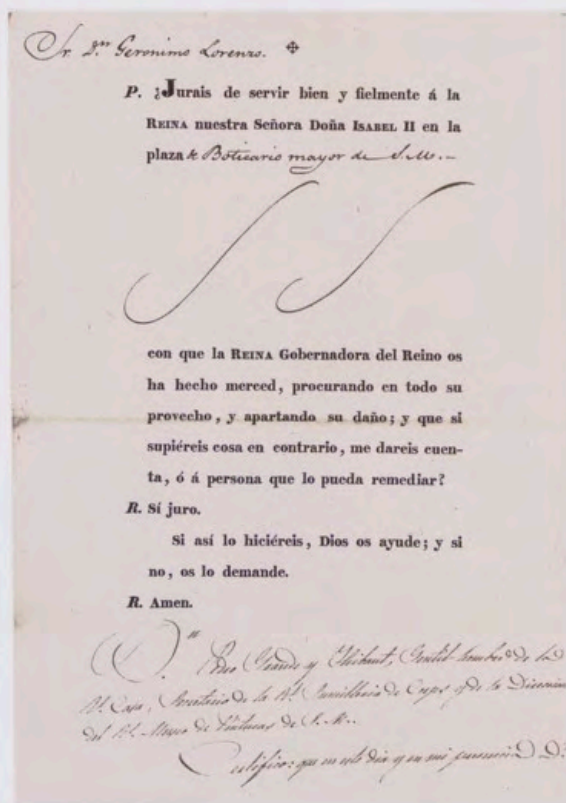 Sr. Dn. Geronimo Lorenzo.
P. ¿Jurais de servir bien y fielmente á la
REINA nuestra Señora Doña ISABEL II en la
plaza de Boticario mayor de S.M.
con que la REINA Gobernadora del Reino os
ha hecho merced, procurando en todo su
provecho, y apartando su daño; y que si
supiéreis cosa en contrario, me dareis cuen-
ta, ó á persona que lo pueda remediar?
R. Sí juro.
Si así lo hiciéreis, Dios os ayude; y si
no, os lo demande.
R. Amen.
Dn. Pedro Grande y Gentil-hombre de la
Rl. Casa, Secretario de la Rl. Sumilleria de Corps y de la Direccion
del Rl. Museo de Pinturas de S.M.
Certifico: que en este dia y en mi presencia D.